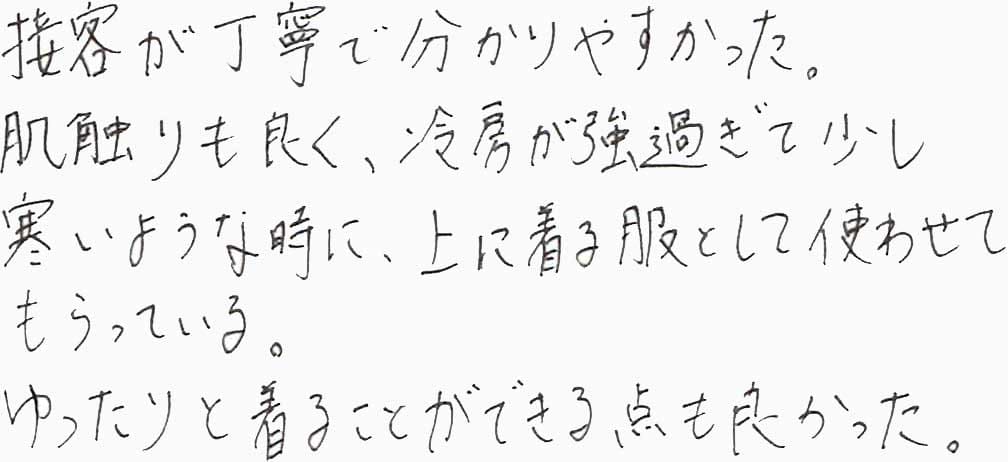 接客が丁寧で分かりやすかった。
肌触りも良く、冷房が強過ぎて少し
寒いような時に、上に着る服として使わせて
もらっている。
ゆったりと着ることができる点も良かった。